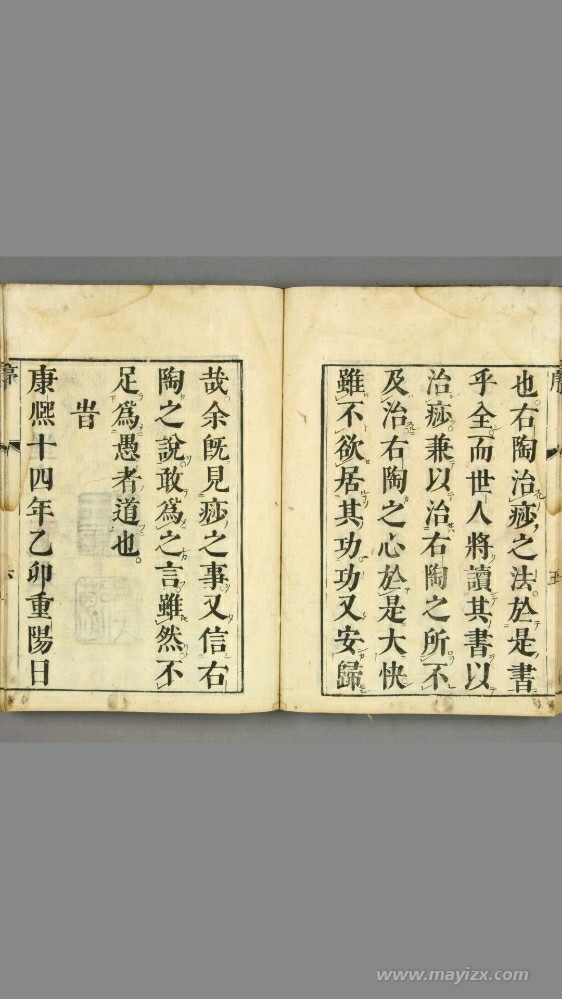 也右陶治痧之法於是書
乎全而世人將讀其書以
治痧兼以治右陶之所不
及治右陶之心於是大快
雖不欲居其功功又安歸
哉余旣見痧之事又信右
陶之說敢爲之言雖然不
足爲愚者道也。
旹
康熈十四年乙卯重陽日
序
序
五
六
www.mayizx.com